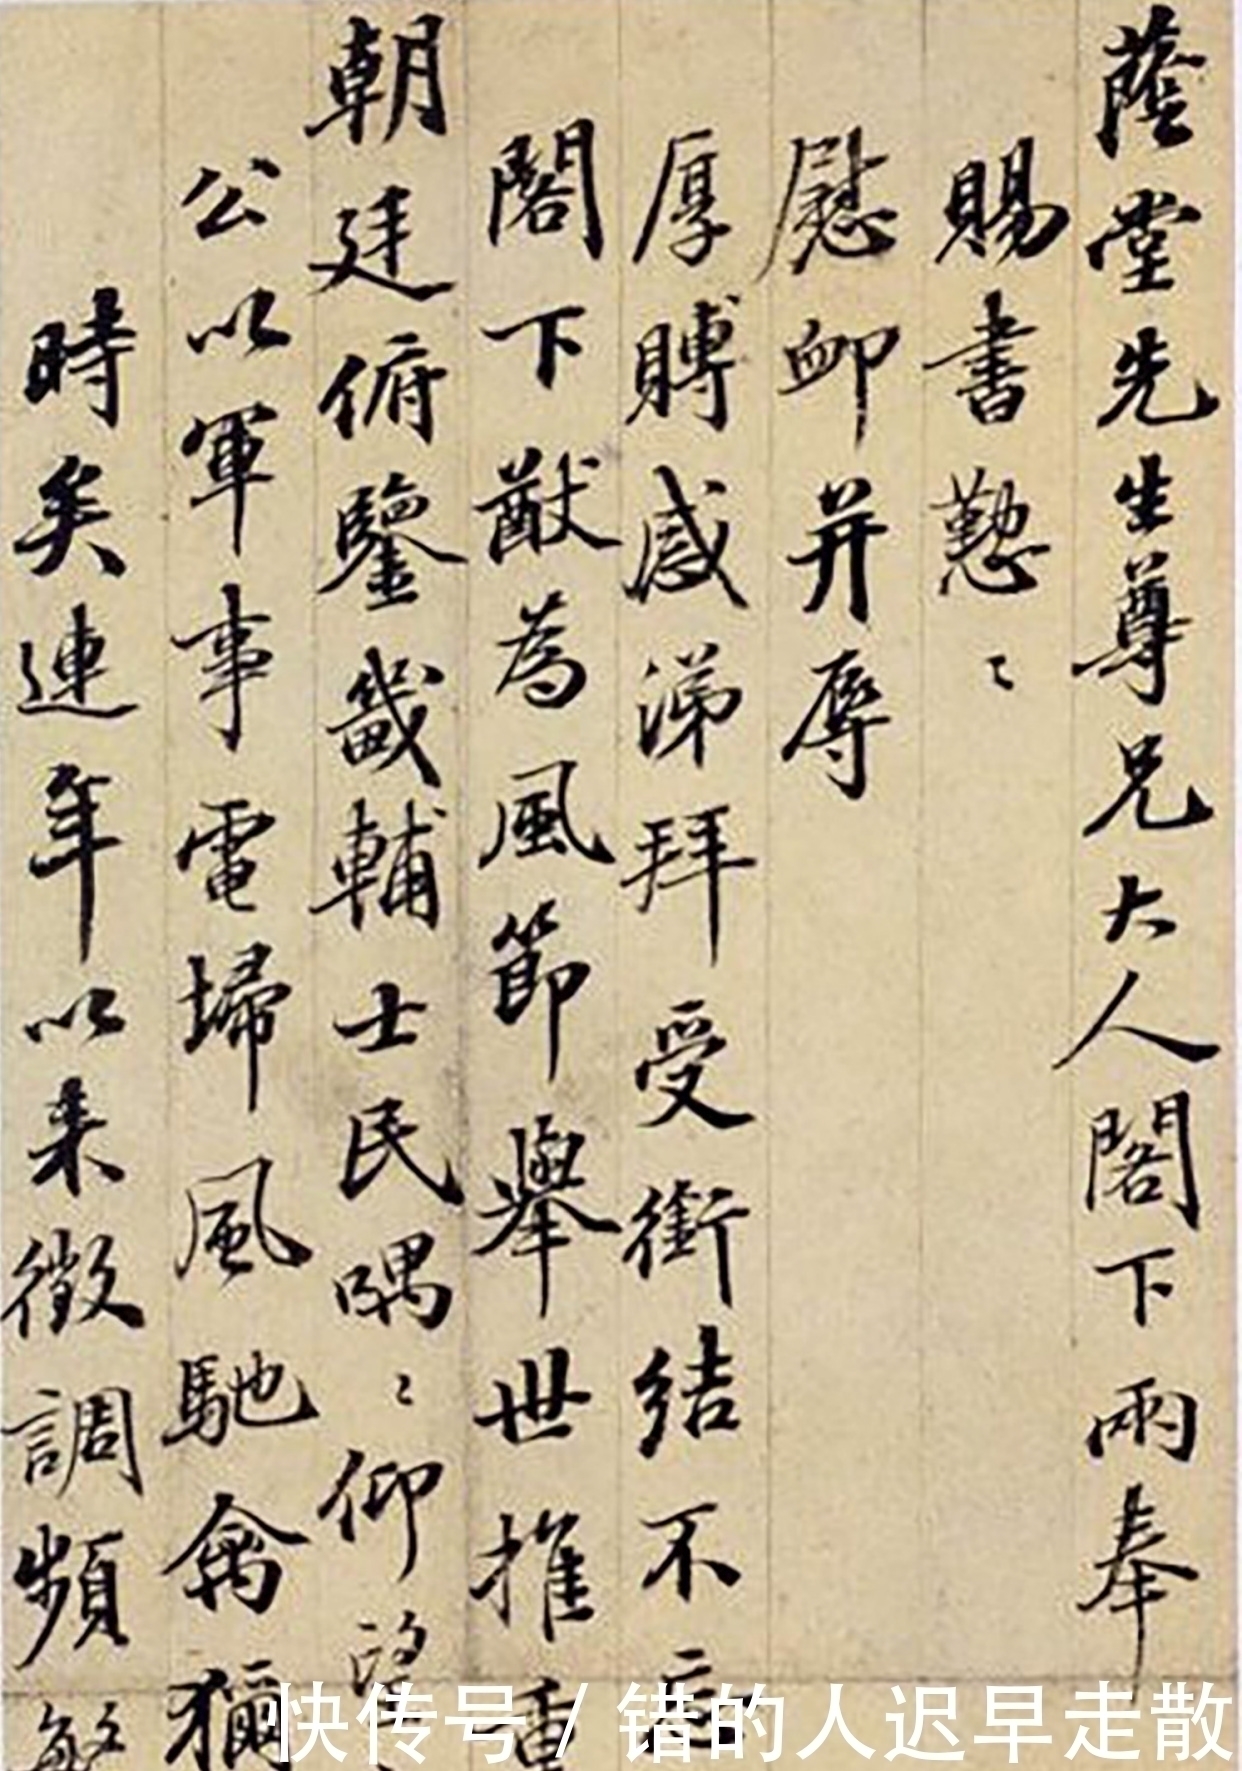 蔭堂先生尊兄大人閣下兩奉
賜書懃〻
慰卹并辱
厚賻感涕拜受銜結不忘
閣下猷為風節舉世推重
朝廷俯鑒畿輔士民隅〻仰望
公以軍事電掃風馳禽獮
時矣連年以来徵調頻繁
快传号/错的人迟早走散